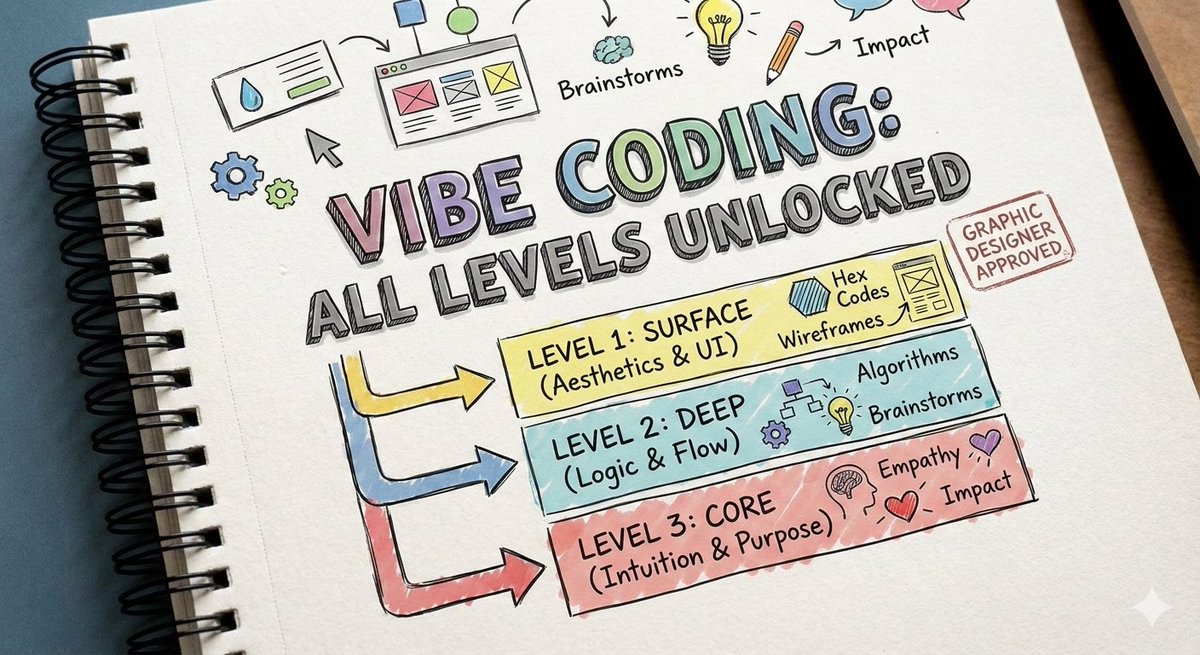 Brainstorms
Impact
VIBE CODING:
ALL LEVELS UNLOCKED
GRAPHIC
DESIGNER
APPROVED
LEVEL 1: SURFACE
(Aesthetics & UI)
Hex
Codes
Wireframes
LEVEL 2: DEEP
(Logic & Flow)
Algorithms
Brainstorms
LEVEL 3: CORE
(Intuition & Purpose)
Empathy
Impact